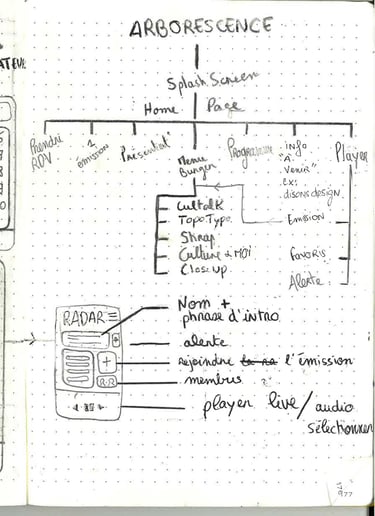 ARBORESCENCE
Splash Screen
Home Page
Prendre RDV
1 émission
Présentat°
Menu Burger
Programme
info "À venir" ex: disons design
Player
Cultalk
TopoType
Shrap
Culture & Moi
Close up
Emission
favoris
Alerte
RADAR
Nom +
phrase d'intro
alerte
rejoindre l'émission
membres
player live/audio
sélectionner
977